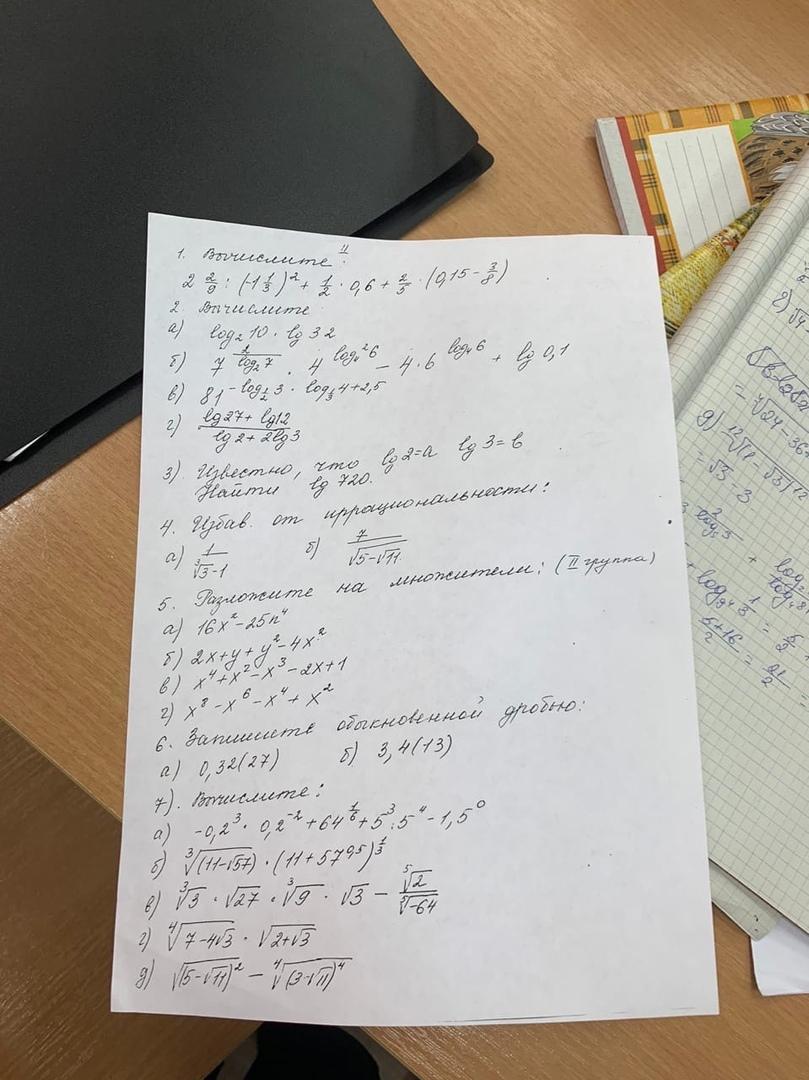 1. Вычислите:
2 2/9 : (-1 1/3)² + 1/2 · 0,6 + 2/5 · (0,15 - 3/8)
2. Вычислите
а) log₂10 · lg 32
б) 7^(2/log₂7) · 4^(log₄²6) - 4·6^(log₄6) + lg 0,1
в) 81^(-log_(1/2)3 · log_(1/3)4 + 2,5)
г) (lg27 + lg12)/(lg2 + 2lg3)
3). Известно, что lg2=a lg3=b
Найти lg 720.
4. Избав. от иррациональности:
а) 1/(∛3-1) б) 7/√(√5-√11)
5. Разложите на множители: (II группа)
а) 16x² - 25n⁴
б) 2x+y+y²-4x²
в) x⁴+x²-x³-2x+1
г) x⁸-x⁶-x⁴+x²
6. Запишите обыкновенной дробью:
а) 0,32(27) б) 3,4(13)
7). Вычислите:
а) -0,2³ · 0,2⁻² + 64^(1/6) + 5³:5⁴ - 1,5⁰
б) ∛(11-√57) · (11+57^0,5)^(1/3)
в) ∛3 · √27 · ∛9 · √3 - ⁵√2/⁵√-64
г) ⁴√(7-4√3) · √(2+√3)
д) √(5-√11)² - ⁴√(3-√11)⁴